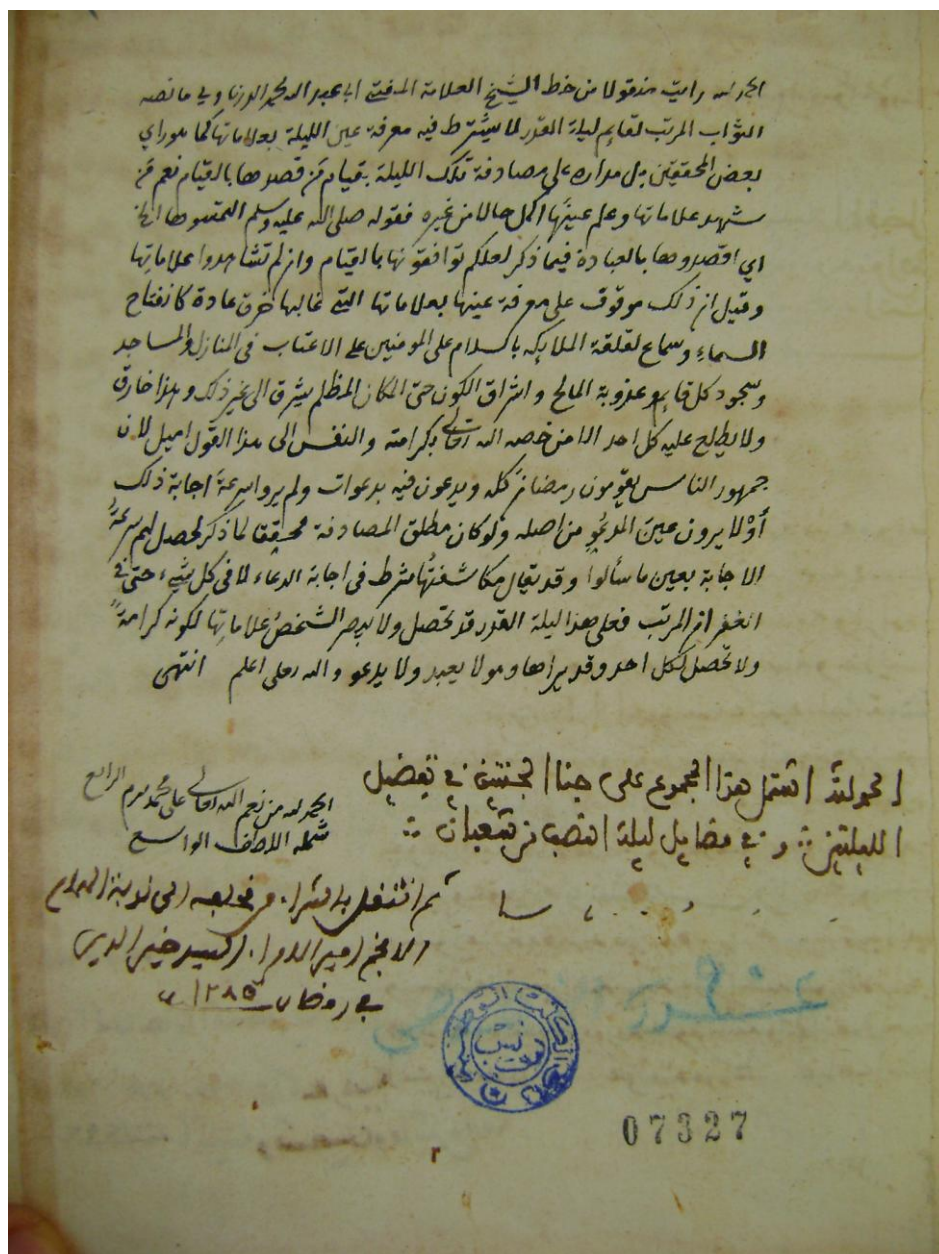 الحمد لله رايت منقولا من خط الشيخ العلامة المفتي ابي عبد الله محمد الدرناوي ما نصه
الثواب المرتب لقايم ليلة القدر لا يشترط فيه معرفة عين الليلة بعلاماتها كما هو راي
بعض المحققين بل مداره على مصادفة تلك الليلة بقيام مَن قصدها بالقيام نعم مَن
شهد علاماتها وعلم عينَها اكمل حالا من غيره فقوله صلى الله عليه وسلم التمسوها الخ
اي اقصدوها بالعبادة فيما ذكر لعلكم توافقونها بالقيام وان لم تشاهدوا علاماتِها
وقيل ان ذلك موقوف على معرفة عينها بعلاماتها التي غالبها خرق عادة كانفتاح
السماءِ وسماع لقلقة الملايكه بالسلام على المومنين على الاعتاب في المنازل والمساجد
وسجود كل قايم وعذوبة المالح واشراق الكون حتى المكان المظلم يشرق الى غير ذلك وهذا خارق
ولا يطلع عليه كل احد الا من خصه الله تعالى بكرامته والنفس الى هذا القول اميل لان
جمهور الناس يقومون رمضان كله ويدعون فيه بدعوات ولم يروا سرعةَ اجابة ذلك
أوْ لا يرون عينَ المدعُوِ من اصله ولو كان مطلق المصادفة محققا لما ذكر لحصل لهم سرعةُ
الاجابة بعين ما سألوا وقد يقال مكاشفتُها شرط في اجابة الدعاء لا في كل شيء حتى في
الغفران المرتب فعلى هذا ليلة القدر قد تحصل ولا يبصر الشخصُ علاماتِها لكونه كرامةً
ولا تحصل لكل احد وقد يراها وهو لا يعبد ولا يدعو والله تعلى اعلم انتهى
الحمد لله اشتمل هذا المجموع على جنا الجنتين في تفضيل
الليلتين وفي فضايل ليلة النصف من شعبان
الحمد لله من نعم الله تعالى على محمد بيرم الرابع
شمله اللطف الواسع
ثم انتقل بالشراء الى نوبة الهمام
الافخم امير الامراء السيد خير الدين
في رمضان ١٢٨٥
تونس
07327
٢